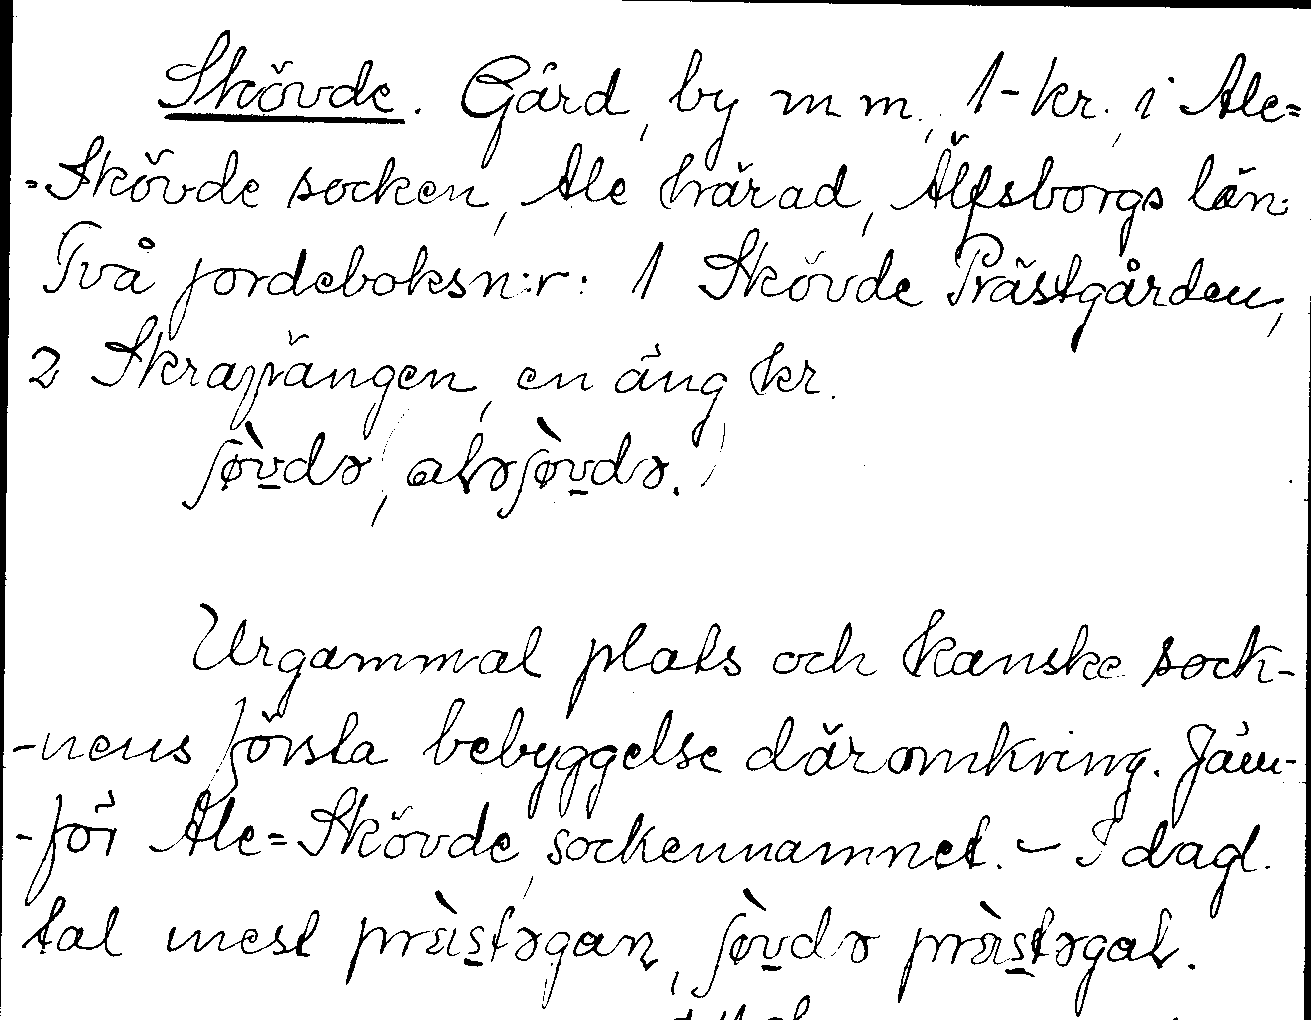 Skövde. Gård, by m m, 1-kr. i Ale=
=Skövde socken, Ale härad, Älfsborgs län.
Två jordeboksn:r: 1 Skövde Prästgården,
2 Skrapängen, en äng kr.
ʃø̀vdə, aləʃø̀vdə.
Urgammal plats och kanske sock-
-nens första bebyggelse däromkring. Jäm-
-för Ale=Skövde, sockennamnet. – I dagl.
tal mest